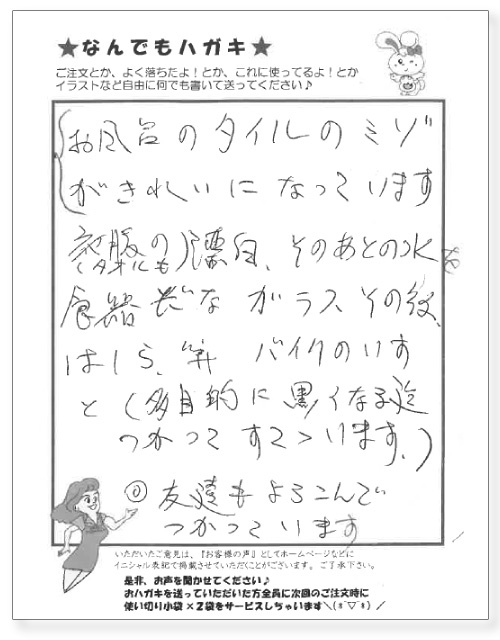 ★なんでもハガキ★
ご注文とか、よく落ちたよ！とか、これに使ってるよ！とか
イラストなど自由に何でも書いて送ってください♪
お風呂のタイルのミゾ
がきれいになっています
衣服の漂白、そのあとの水を
(タオルにも)
食器だな ガラス その後、
はしら、 バイクのいす
と(多目的に黒くなる迄
つかって すてています。)
◎友達もよろこんで
つかっています
いただいたご意見は、『お客様の声』としてホームページなどに
イニシャル表記で掲載させていただくことがございます。ご了承下さい。
是非、お声を聞かせてください♪
おハガキを送っていただいた方全員に次回のご注文時に
使い切り小袋×２袋をサービスしちゃいます＼(*ﾟ▽ﾟ*)／